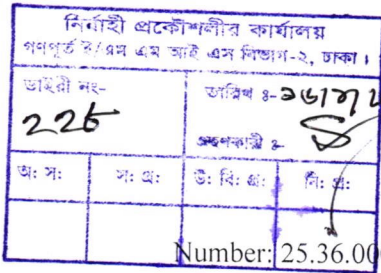 নির্বাহী প্রকৌশলীর কার্যালয়
গণপূর্ত ই/এম এম আই এস বিভাগ-২, ঢাকা।
ডাইরী নং-
তারিখ ঃ-
গ্রহণকারী ঃ-
অ: স:
স: প্র:
উ: বি: প্র:
নি: প্র:
Number: 25.36.00